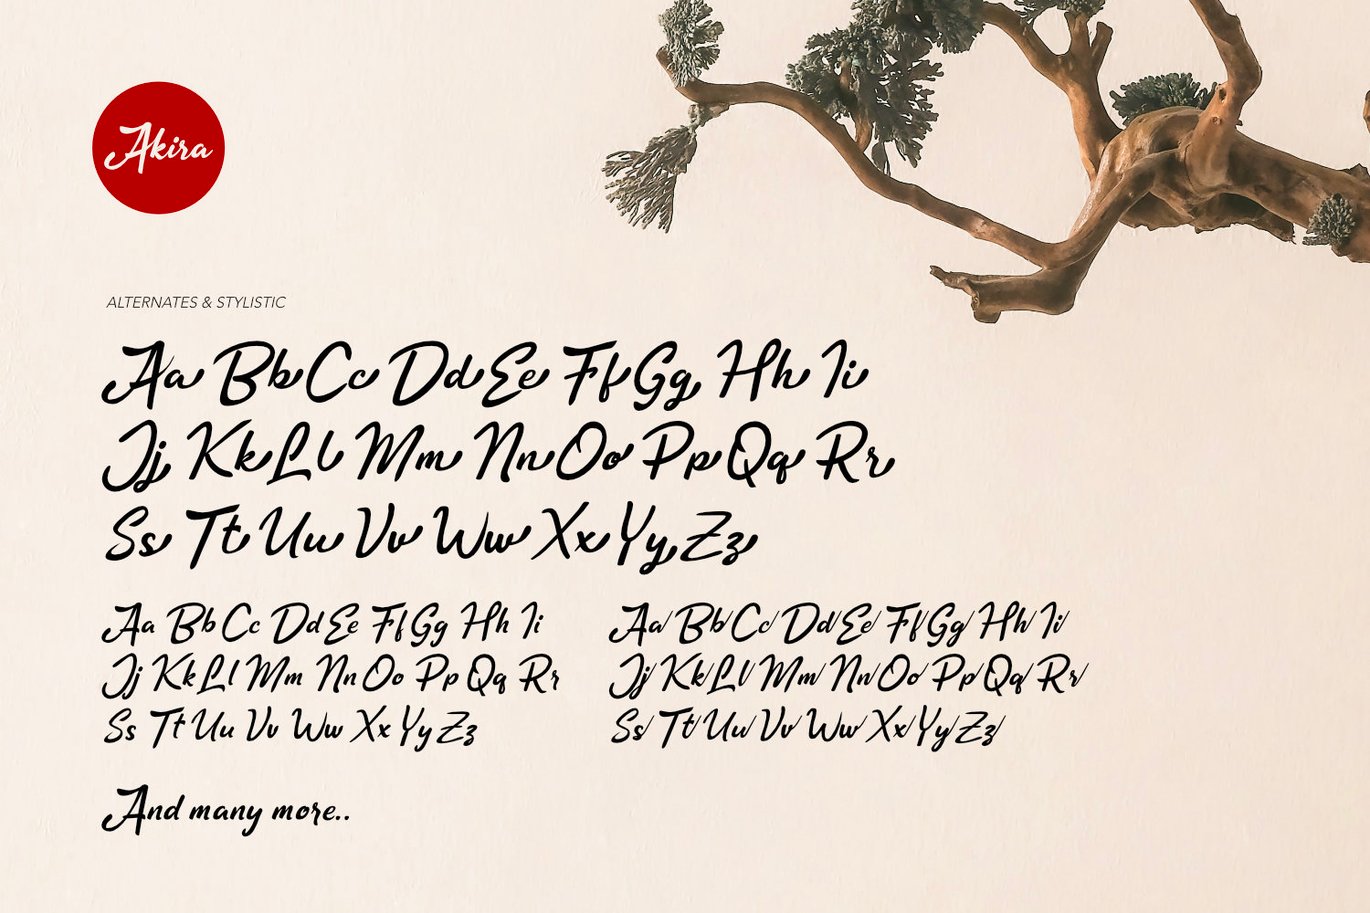 Akira
ALTERNATES & STYLISTIC
Aa Bb Cc Dd Ee Ff Gg Hh Ii
Jj Kk Ll Mm Nn Oo Pp Qq Rr
Ss Tt Uu Vv Ww Xx Yy Zz
Aa Bb Cc Dd Ee Ff Gg Hh Ii
Jj Kk Ll Mm Nn Oo Pp Qq Rr
Ss Tt Uu Vv Ww Xx Yy Zz
Aa Bb Cc Dd Ee Ff Gg Hh Ii
Jj Kk Ll Mm Nn Oo Pp Qq Rr
Ss Tt Uu Vv Ww Xx Yy Zz
And many more..